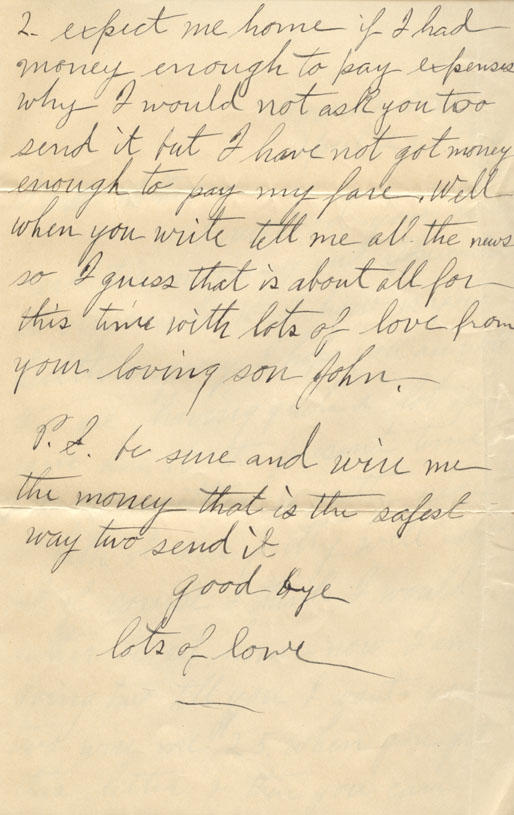 2. expect me home if I had
money enough to pay expenses
why I would not ask you too
send it but I have not got money
enough to pay my fare. Well
when you write tell me all the news
so I guess that is about all for
this time with lots of love from
your loving son John.
P.S. be sure and wire me
the money that is the safest
way two send it
good bye
lots of love